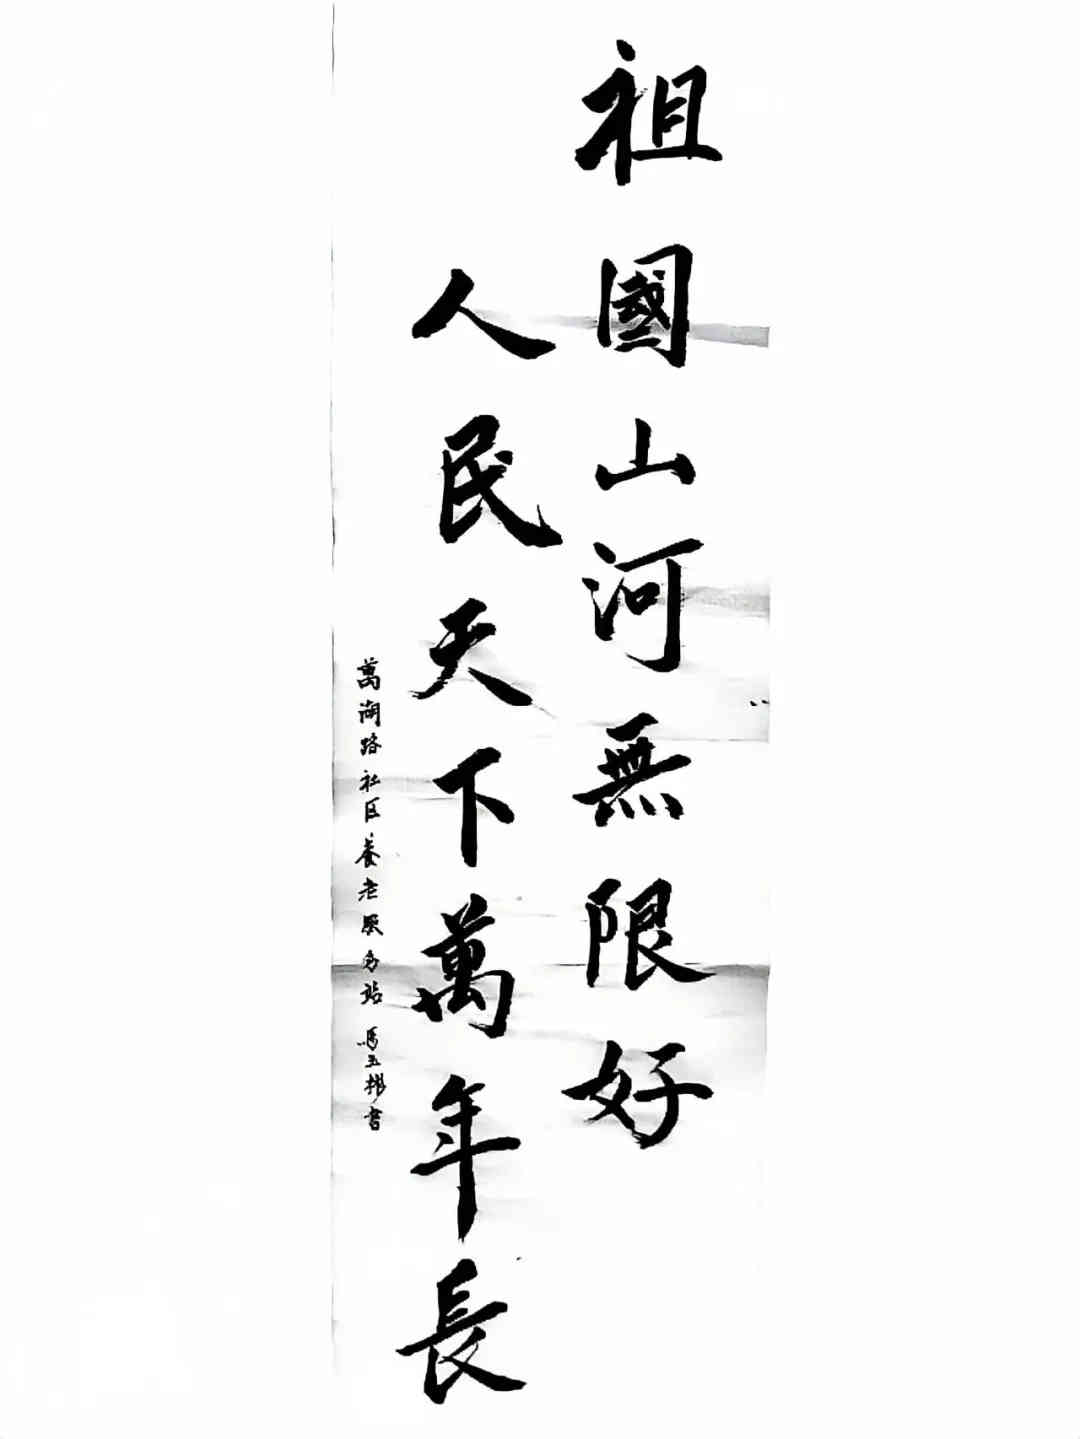 祖國山河無限好
人民天下萬年長
萬湖路社区養老服务站 馬玉彬書